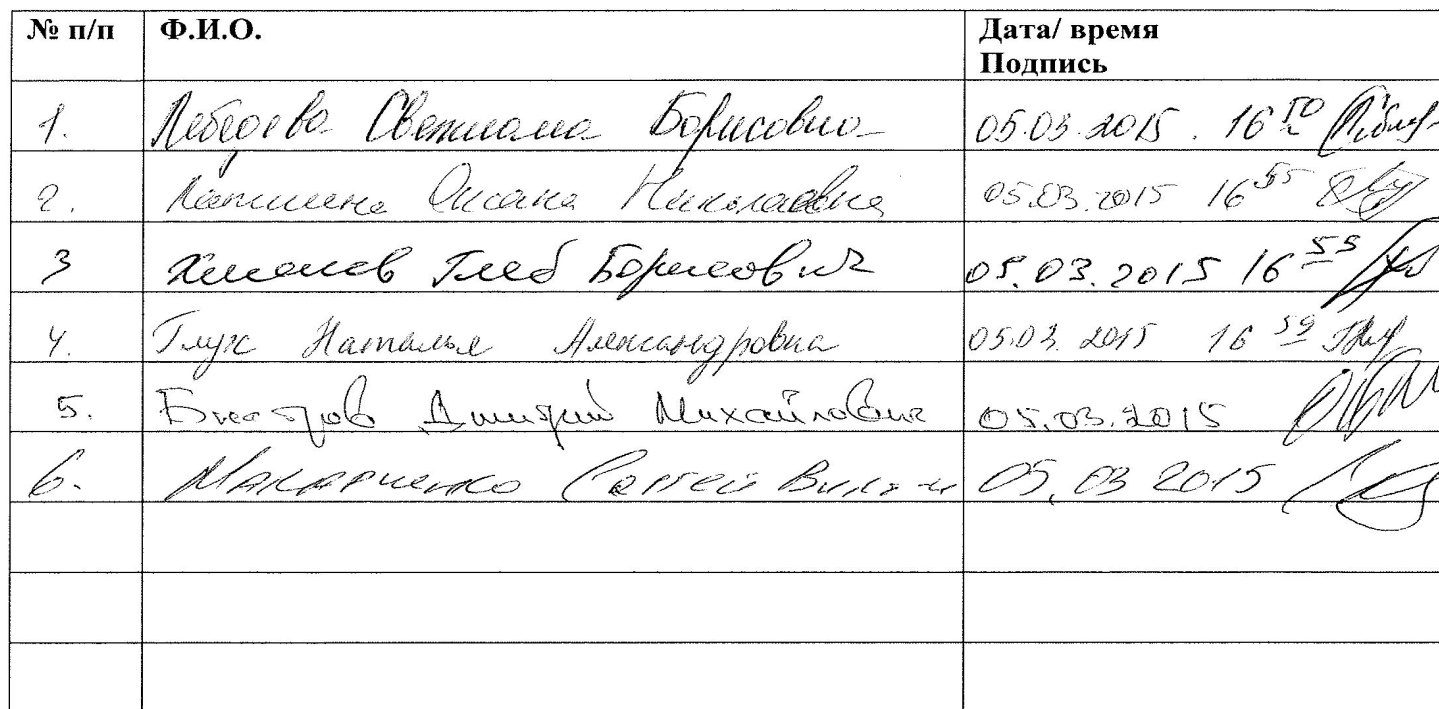 № п/п Ф.И.О. Дата/ время
Подпись
1. Лебедева Светлана Борисовна 05.03.2015. 16 50
2. Оксана Николаевна 05.03.2015 16 55
3 Глеб Борисович 05.03.2015 16 55
4. Глух Наталья Александровна 05.03.2015 16 59
5. Быстров Дмитрий Михайлович 05.03.2015
6. Макариенко Сергей 05.03 2015